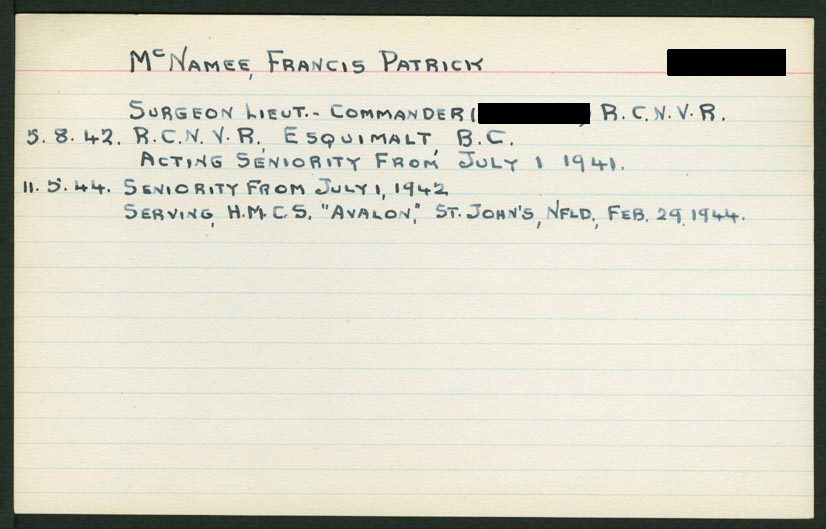 McNAMEE, FRANCIS PATRICK
SURGEON LIEUT.- COMMANDER ( ) R.C.N.V.R.
5.8.42. R.C.N.V.R., ESQUIMALT, B.C.
ACTING SENIORITY FROM JULY 1 1941.
11.5.44. SENIORITY FROM JULY 1, 1942
SERVING, H.M.C.S. "AVALON," ST. JOHN'S, NFLD., FEB. 29, 1944.